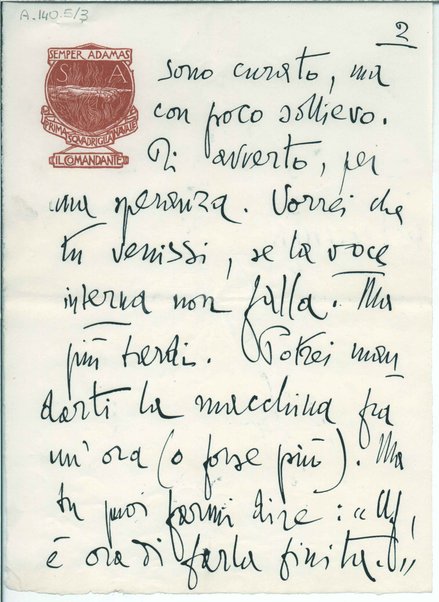 A.140.E/3
2
SEMPER ADAMAS
S A
PRIMA SQUADRIGLIA NAVALE
IL COMANDANTE
sono curato, ma
con poco sollievo.
Ti avverto, per
una speranza. Vorrei che
tu venissi, se la voce
interna non falla. Ma
più tardi. Potrei man
darti la macchina fra
un'ora (o forse più). Ma
tu puoi farmi dire: «Uf,
è ora di farla finita.»